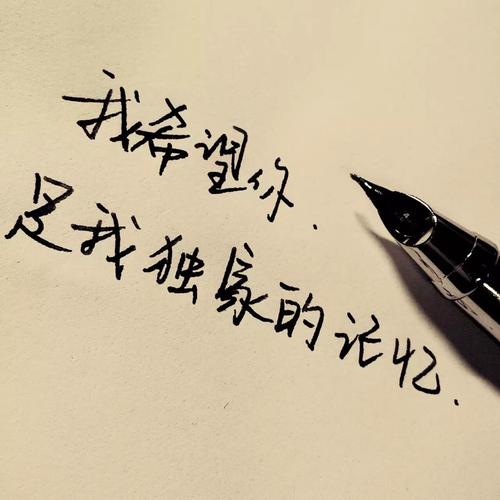 我希望你.
是我独家的记忆.